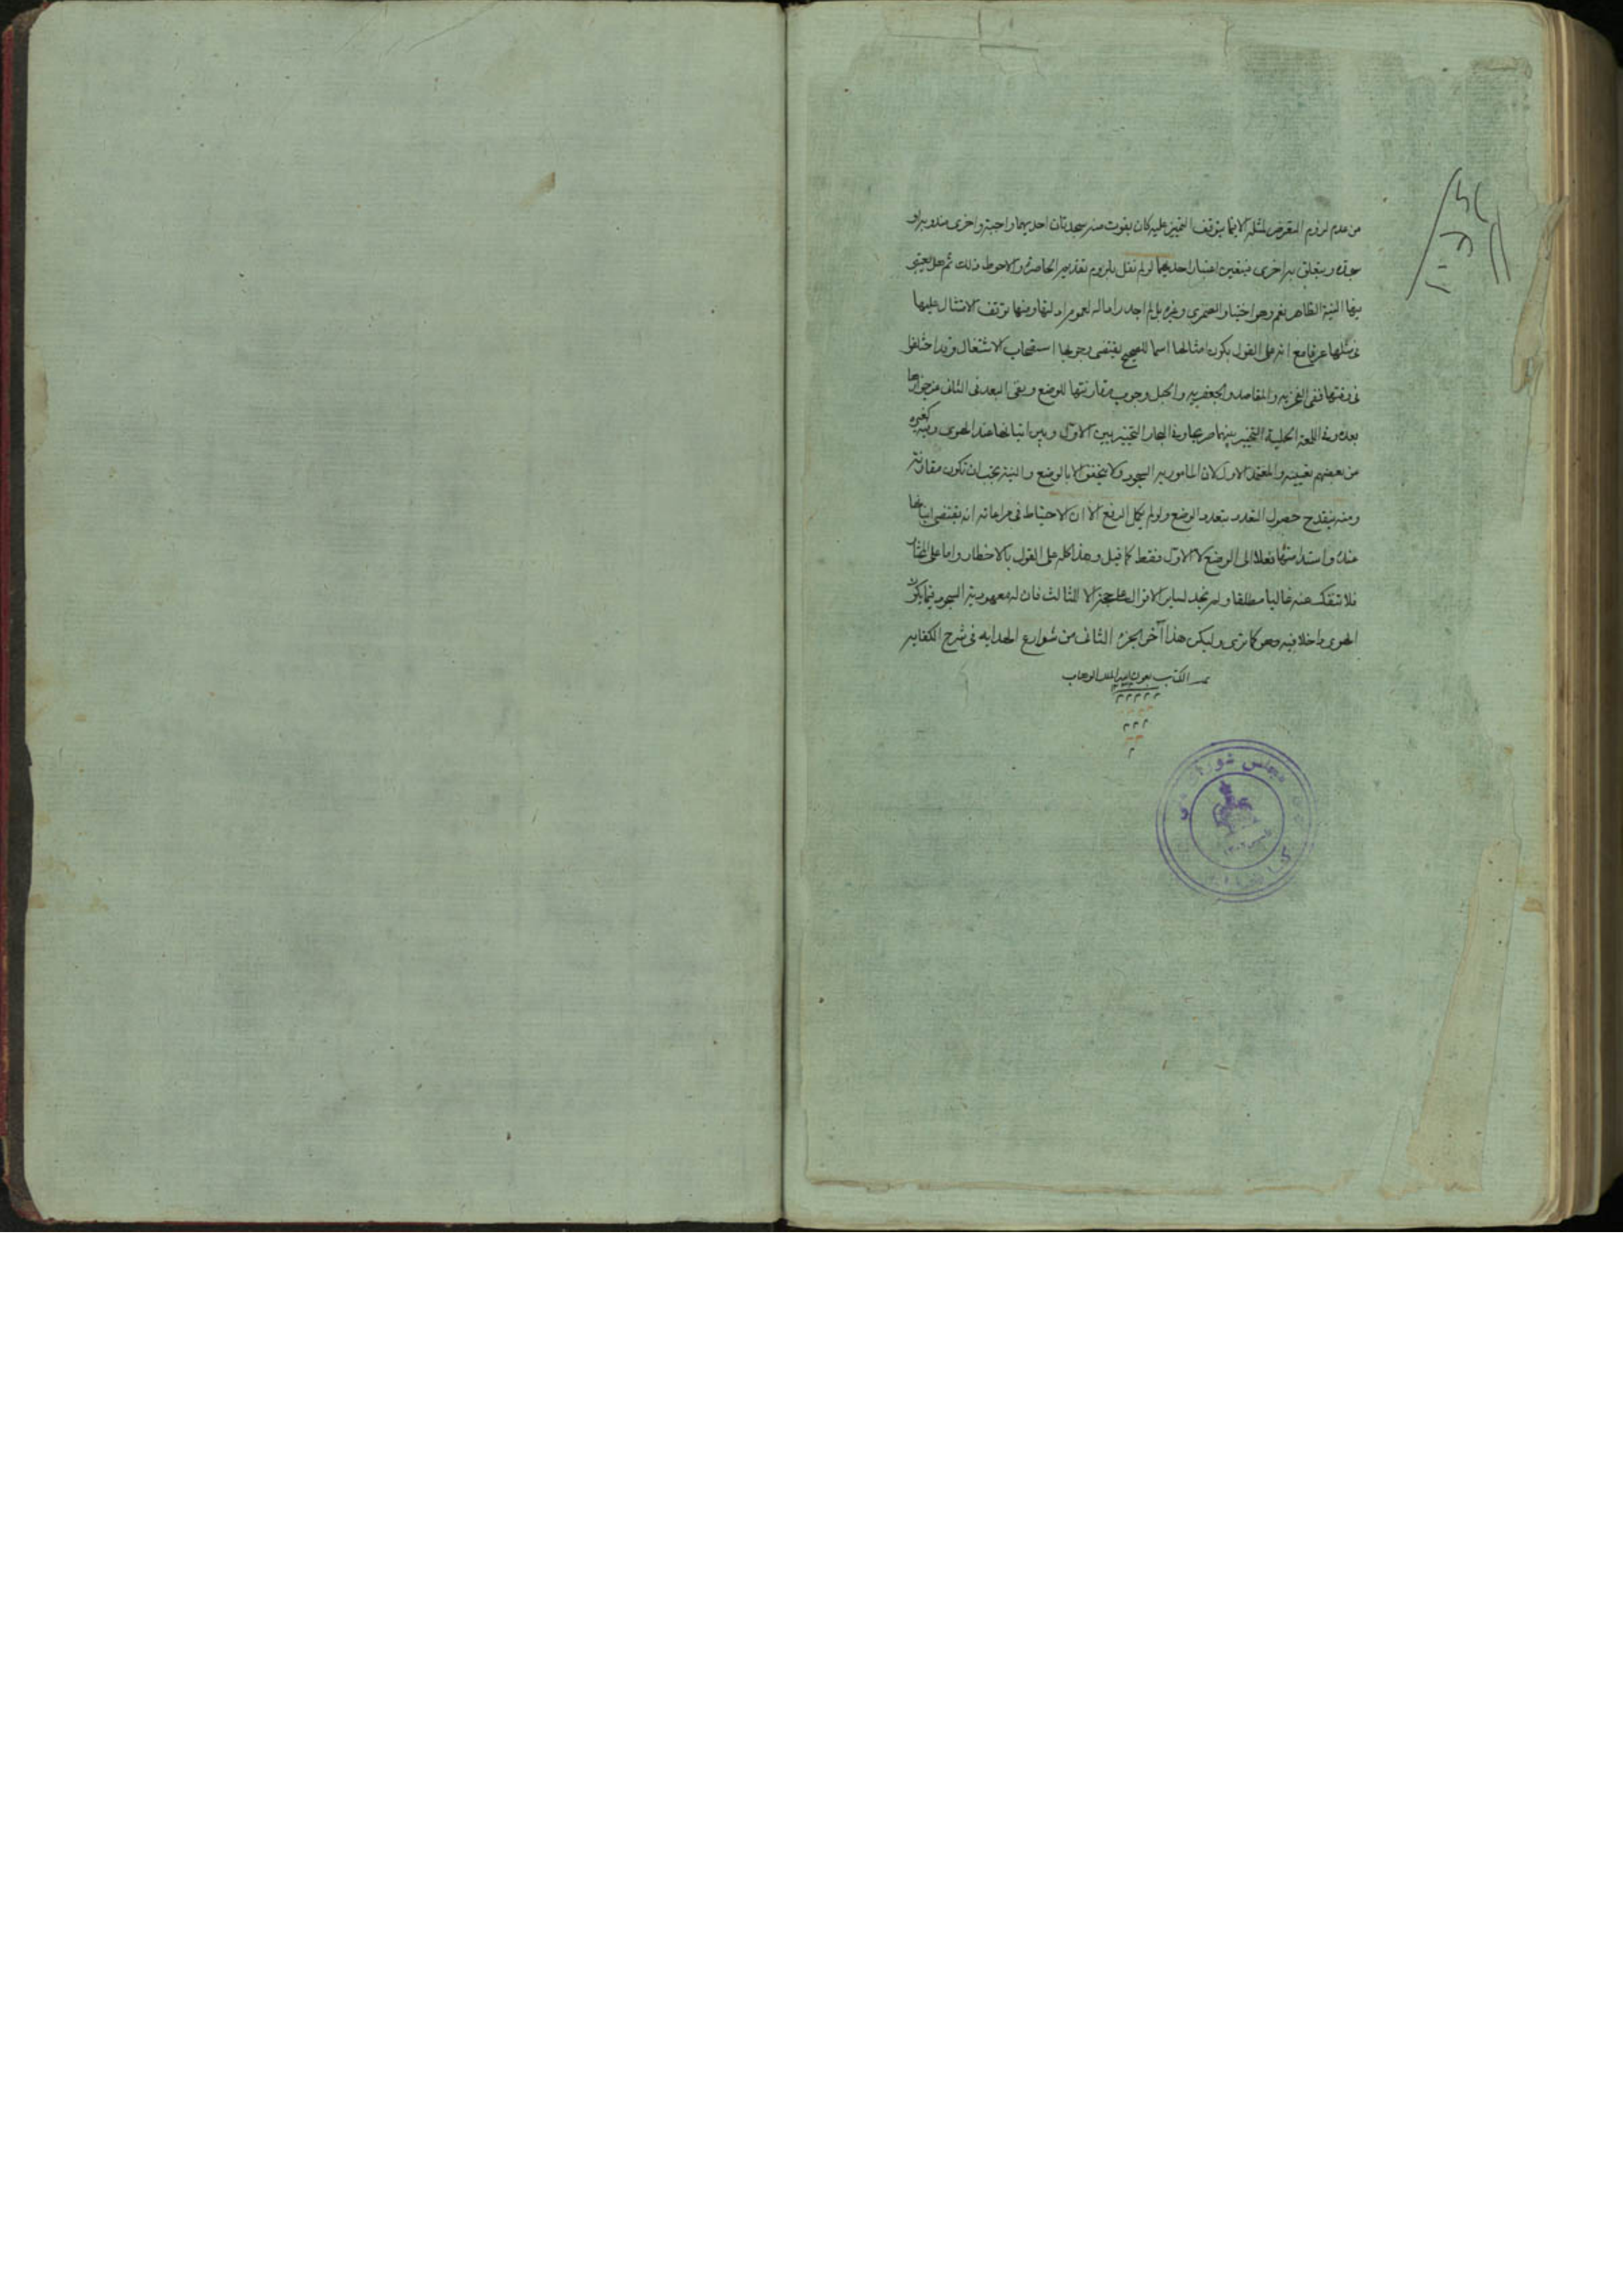 من عدم لزوم التعرض لمثله الا فيما يتوقف التميز عليه كان يفوت منه سجدتان احديهما واجبة واخرى مندوبة او
سجدة ويتعلق به اخرى فيتعين اعتبار احديهما لو لم نقل بلزوم تقديم الحاضرة والاحوط ذلك ثم هل يعتبر
فيها النية الظاهر نعم وهو اختيار وغيره بل لم اجد رادا له لعموم ادلتها ومنها توقف الامتثال عليها
في مثلها عرفا مع انه على القول بكون امثالها اسما للصحيح يقتضى وجوبها استصحاب الاشتغال وقد اختلفوا
في وقتها ففى الغرية والمقاصد والجعفرية والحبل وجوب مقارنتها للوضع ونفى البعد في الثانى من جوازها
بعده وفي اللمعة الحلية التخيير بينهما صريحا وفي البحار التخيير بين الاول وبين اتيانها عند الهوى وفيه كغيره
من بعضهم تعيينه والمعتمد الاول لان المامور به السجود ولا يتحقق الا بالوضع والنية يجب ان تكون مقارنة
ومنه ينقدح حصول التعدد بتعدد الوضع ولو لم يكمل الرفع الا ان الاحتياط في مراعاته انه يقتضى اتيانها
عنده واستدامتها فعلا الى الوضع لا الاول فقط كما قيل وهذا كله على القول بالاخطار واما على المختار
فلا تنفك عنه غالبا مطلقا ولم نجد لساير الاقوال حجة الا للثالث فان له معهودية السجود فيما يكون
الهوى داخلا فيه وهو كما ترى وليكن هذا آخر الجزء الثانى من شوارع الهداية في شرح الكفاية
تمت الكتاب بعون الله الملك الوهاب
مجلس شوراى ملى